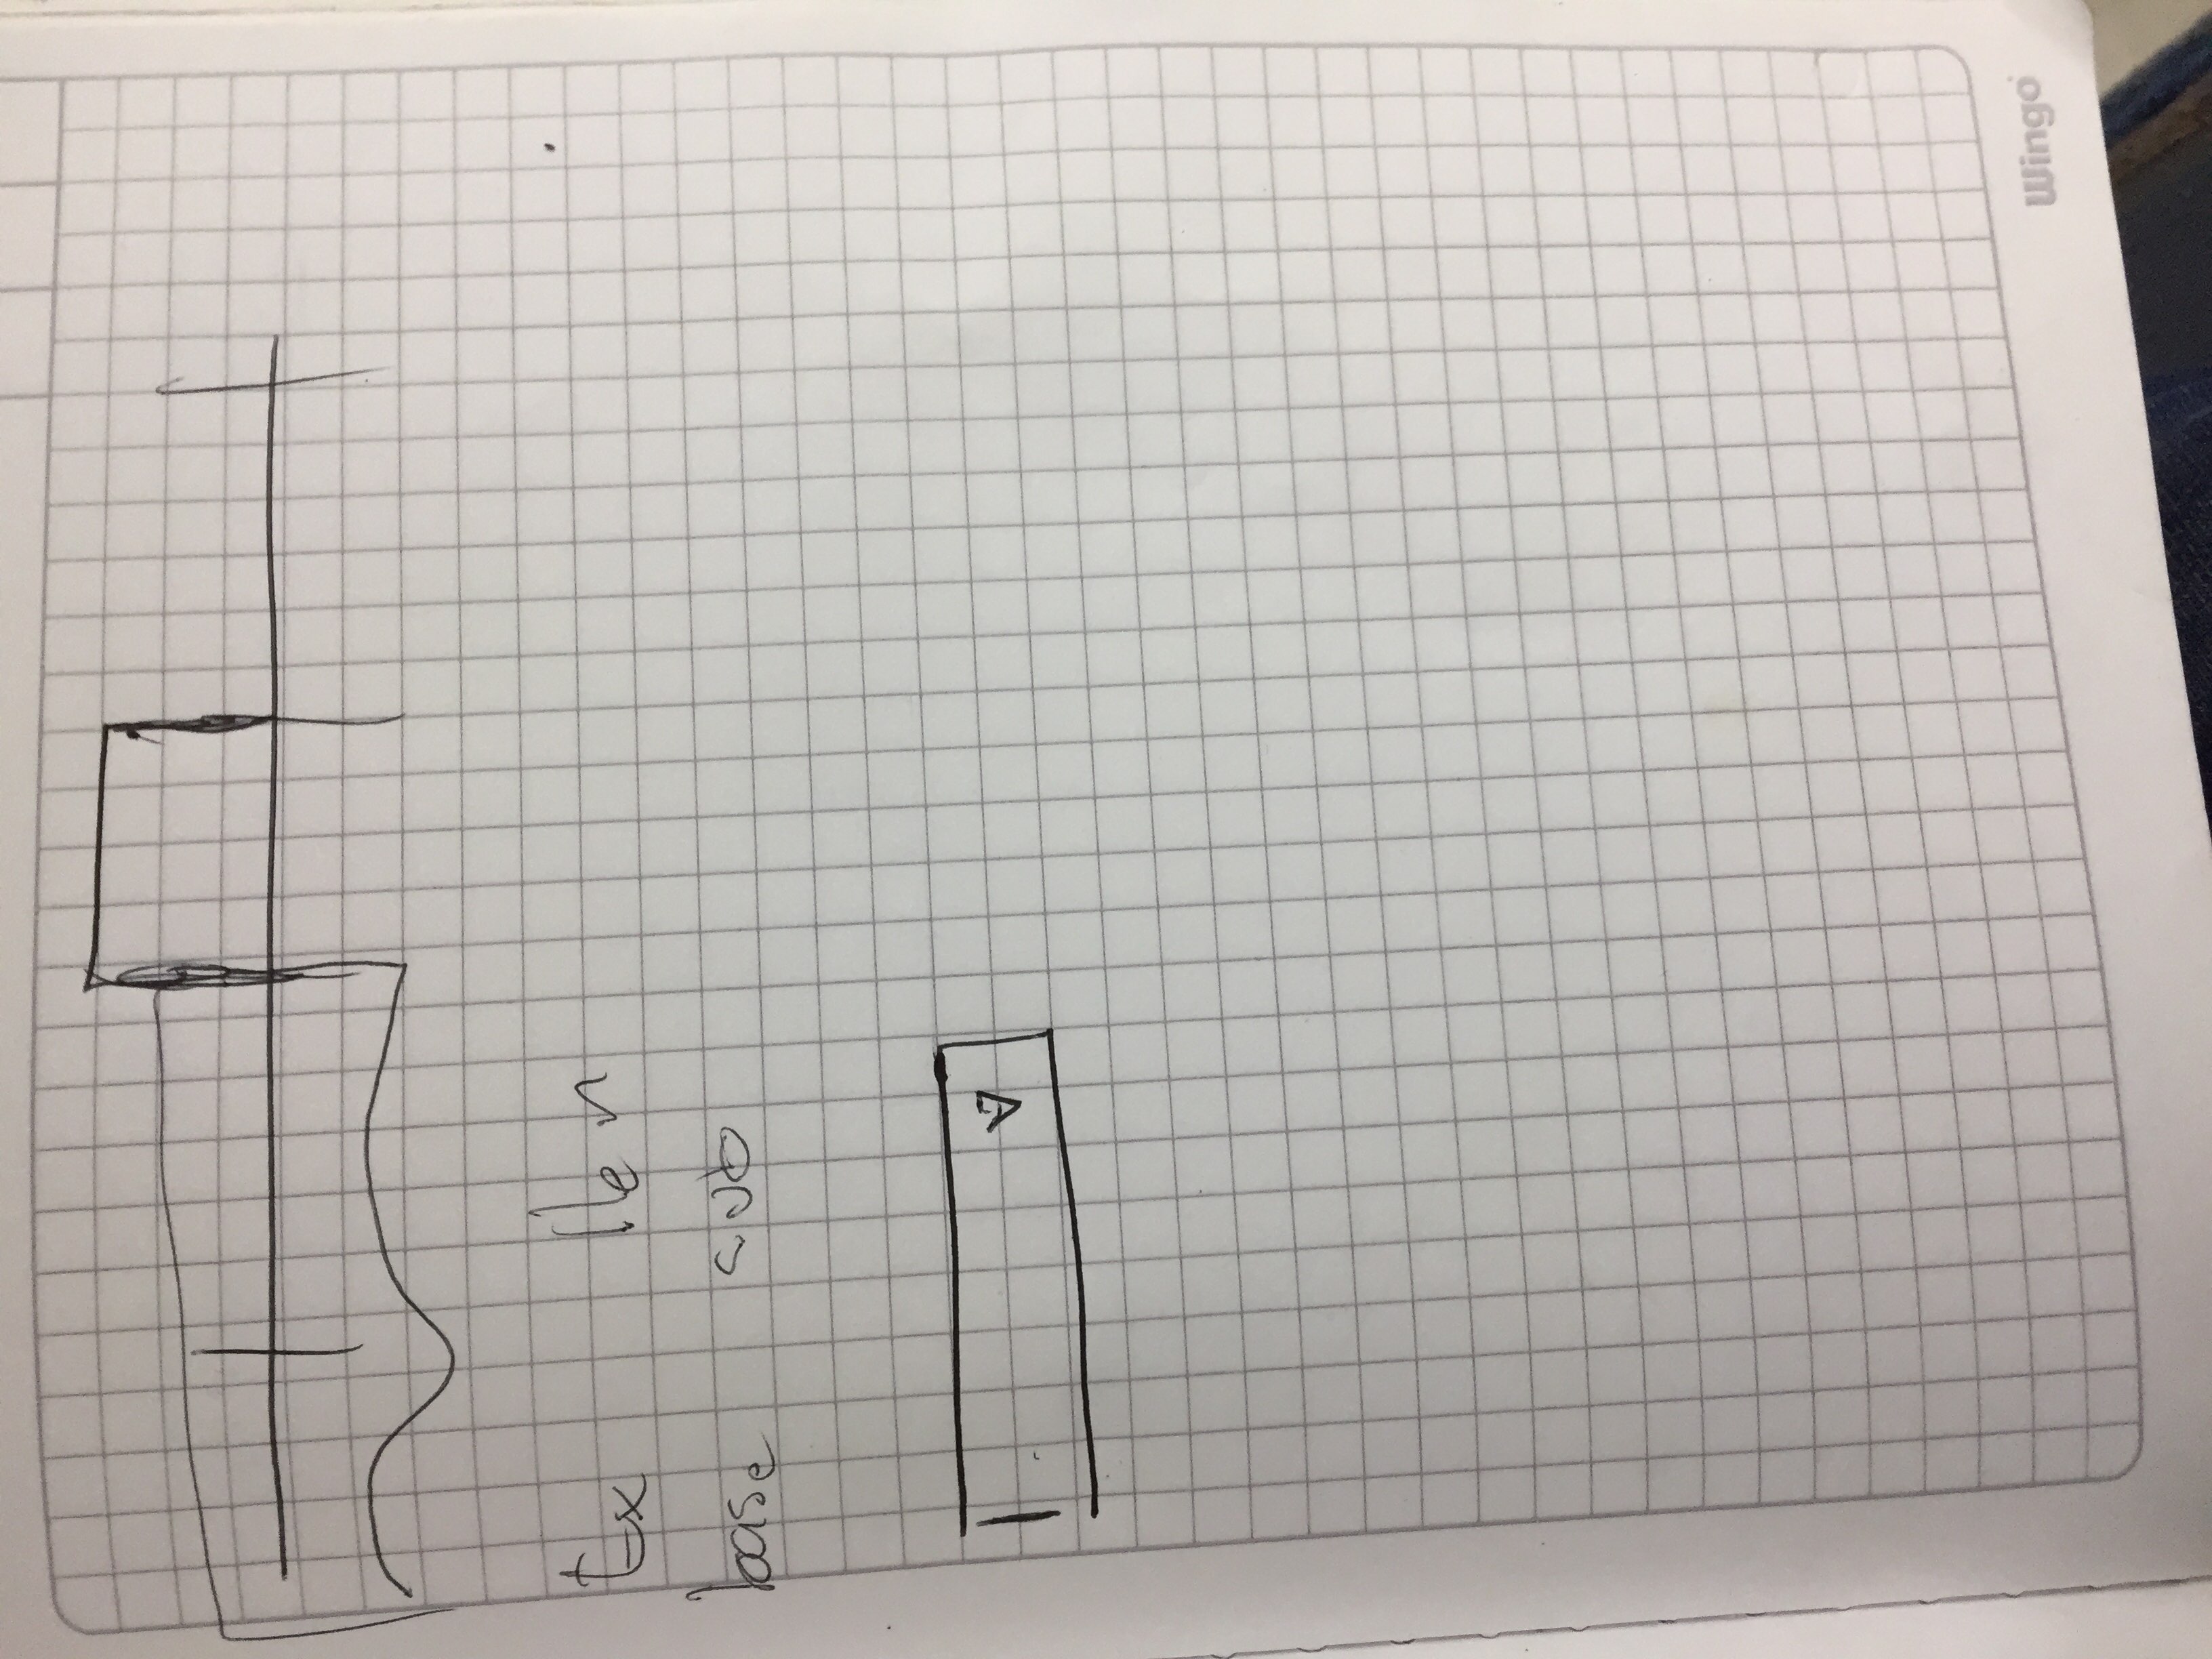 Ex llen
base sub
Wingo